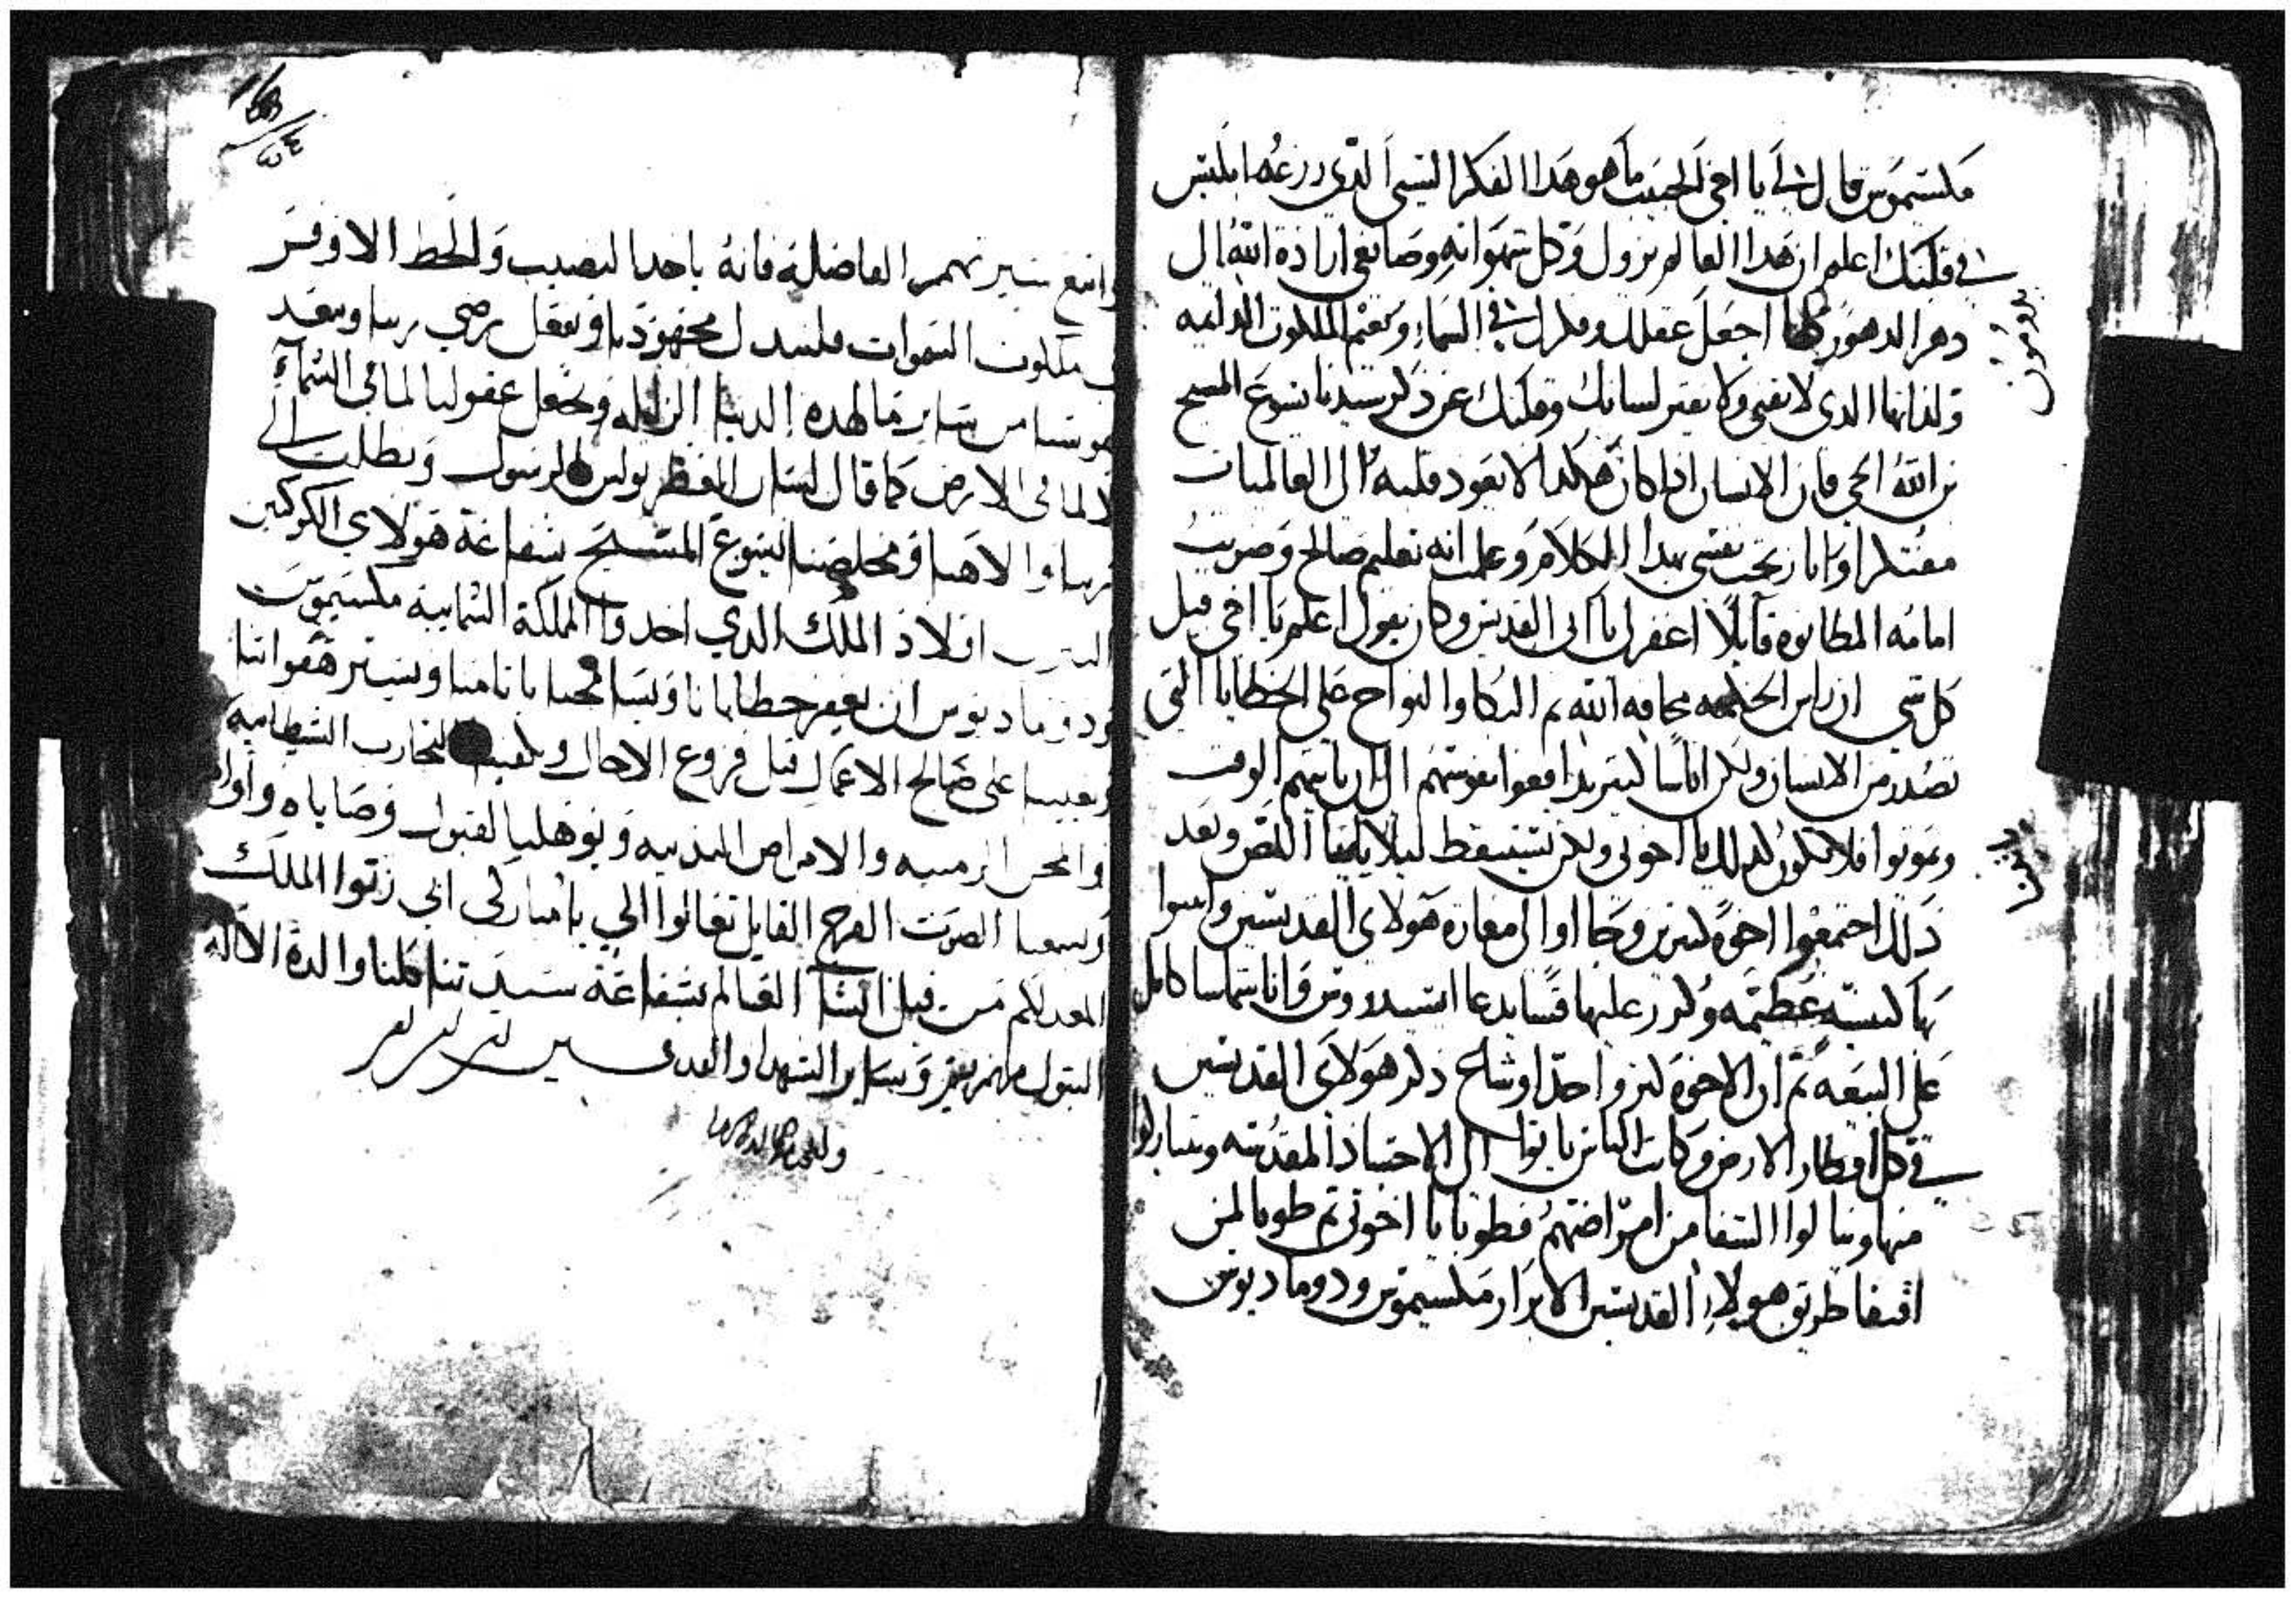 مكسيموس قال لي يا اخي الحبيب ما هو هدا الفكر السي الدي زرعه ابليس
في قلبك اعلم ان هدا العالم يزول وكل شهواته وصانعي ارادة الله الى
دهر الدهور كلها اجعل عقلك وفكرك في السماء وتغنم الملكوت الدايمه
ولداتها الدي لا تفنى ولا يفتر لسانك وقلبك عن دكر سيدنا يسوع المسيح
بن الله الحي فان الانسان ادا كان هكدا لا يعود قلبه الى العالميات
مفتكرا وانا ربحت نفسي بهدا الكلام وعلمت انه تعليم صالح وضربت
امامه المطانوه قايلا اغفر لي يا ابي القديس وكان يقول اعلم يا اخي قبل
كل شي ان راس الحكمه مخافه الله ثم البكا والنواح على الخطايا التي
تصدر من الانسان ولكن اناسا كتير يدافعوا نفوسهم الى ان ياتيهم الوقت
ويموتوا فلا نكون كدلك يا اخوتي ولكن نستيقظ ليلا ياتينا اللص وبعد
دلك اجتمعوا اخوة كتيرين وجااوا الى مغارة هولاي القديسين وابنوا
بها كنيسه عظيمه وكرز عليها قسا يدعا ايسيدروس وانا شماسا كامل
على البيعه ثم ان الاخوة كتروا جدا وشاع دكر هولاي القديسين
في كل اقطار الارض وكانت الناس ياتوا الى الاجساد المقدسه ويتباركوا
منها وينالوا الشفا من امراضهم فطوبا يا اخوتي ثم طوبا لمن
اقتفا طريق هولاء القديسين الابرار مكسيموس ودوماديوس
واتبع سيرتهم الفاضلة فانه ياخد النصيب والحظ الاوفر
في ملكوت السموات فلنبدل مجهودنا ونفعل برضي ربنا ونبعد
نفوسنا من ساير ما لهده الدنيا الزايله ونجعل عقولنا لما في السماء
لا لما في الارض كما قال لسان العطر بولس الرسول ونطلب الى
ربنا والاهنا ومخلصنا يسوع المسيح بشفاعة هولاي الكوكبين
النيرين اولاد الملك الدي اخدوا المملكة السمايية مكسيموس
ودوماديوس ان يغفر خطايانا ويسامحنا باتامنا ويستر هفواتنا
ويعيننا على صالح الاعمال قبل فروغ الاجال ويكفينا التجارب الشيطانيه
والمحن الزمنيه والامراض البدنيه ويوهلنا لقبول وصاياه واوامره
ويسمعنا الصوت الفرح القايل تعالوا الي يا مباركي ابي رتوا الملك
المعد لكم من قبل انشا العالم بشفاعة سيدتنا كلنا والدة الاله
البتول مرتمريم وساير الشهدا والقديسين امين امين امين